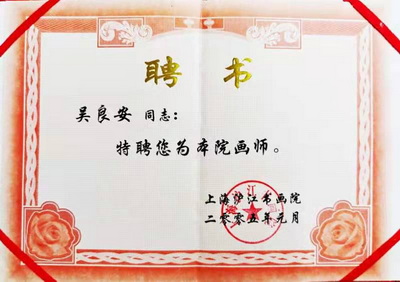 聘书
吴良安 同志：
特聘您为本院画师。
上海沪江书画院
二零零五年元月